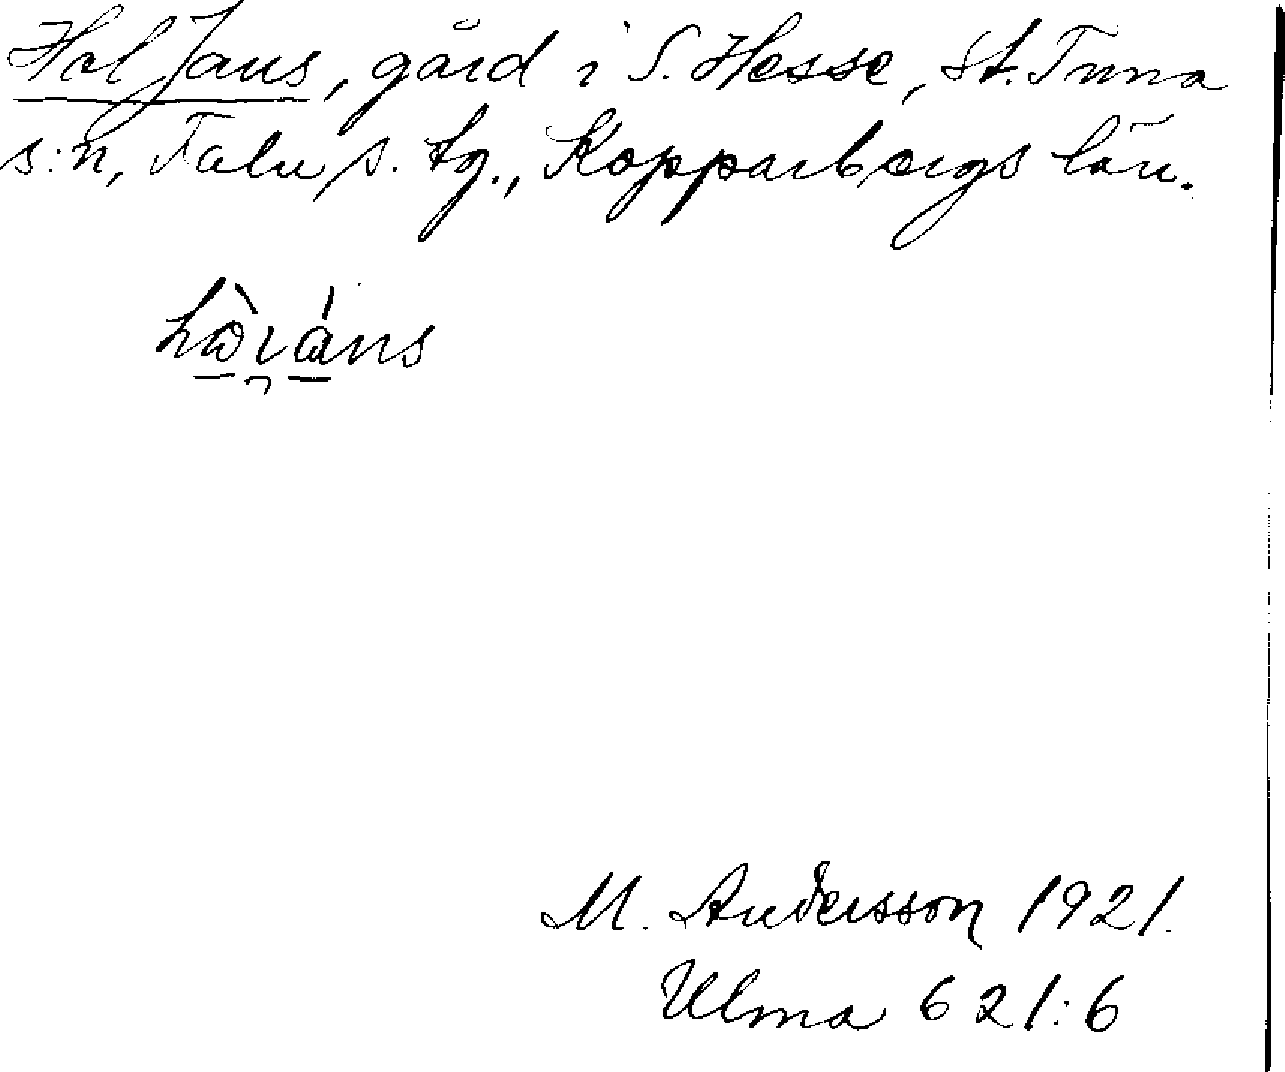 Hol Jans, gård i S. Hesse, St. Tuna
s:n, Falu s. tg., Kopparbergs län.
M. Andersson 1921.
Ulma 621:6